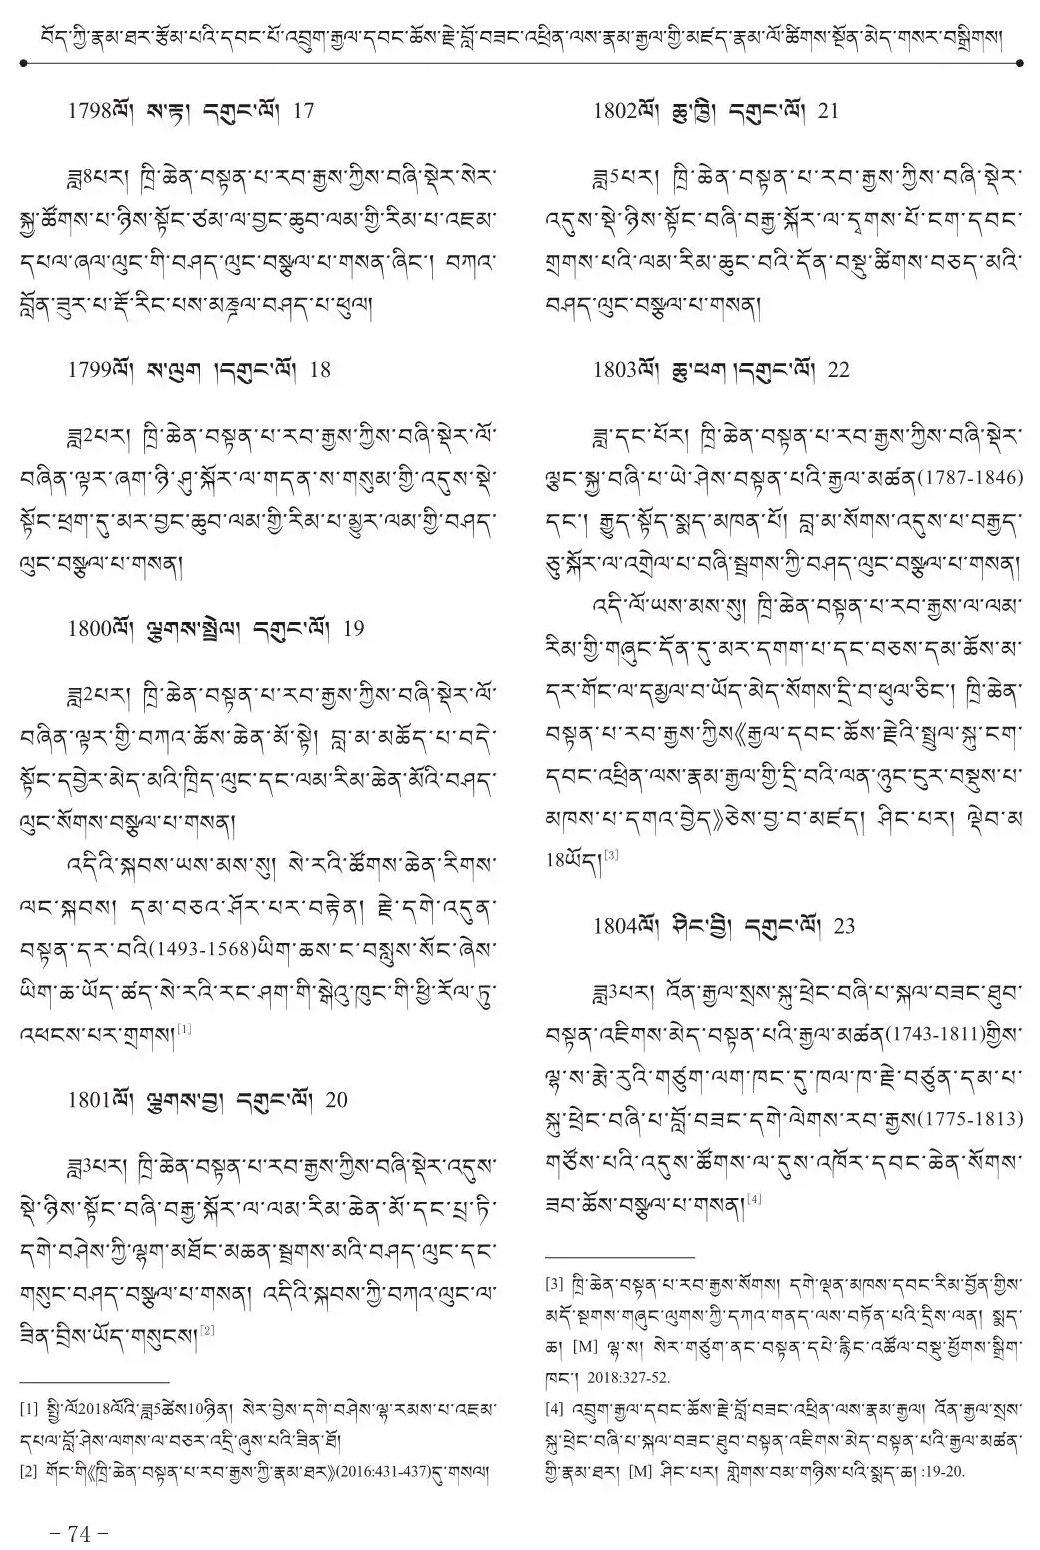 བོད་ཀྱི་རྣམ་ཐར་རྩོམ་པའི་དབང་པོ་འབྲུག་རྒྱལ་དབང་ཆོས་རྗེ་བློ་བཟང་འཕྲིན་ལས་རྣམ་རྒྱལ་གྱི་མཛད་རྣམ་ལོ་ཚིགས་སྔོན་མེད་གསར་བསྒྲིགས།
1798ལོ། ས་རྟ། དགུང་ལོ། 17
ཟླ8པར། ཁྲི་ཆེན་བསྟན་པ་རབ་རྒྱས་ཀྱིས་བཞི་སྡེར་སེར་
སྐྱ་ཚོགས་པ་ཉིས་སྟོང་ཙམ་ལ་བྱང་ཆུབ་ལམ་གྱི་རིམ་པ་འཇམ་
དཔལ་ཞལ་ལུང་གི་བཤད་ལུང་བསྩལ་པ་གསན་ཞིང་། བཀའ་
བློན་ཟུར་པ་རྡོ་རིང་པས་མཎྜལ་བཤད་པ་ཕུལ།
1799ལོ། ས་ལུག །དགུང་ལོ། 18
ཟླ2པར། ཁྲི་ཆེན་བསྟན་པ་རབ་རྒྱས་ཀྱིས་བཞི་སྡེར་ལོ་
བཞིན་ལྟར་ཞག་ཉི་ཤུ་སྐོར་ལ་གདན་ས་གསུམ་གྱི་འདུས་སྡེ་
སྟོང་ཕྲག་དུ་མར་བྱང་ཆུབ་ལམ་གྱི་རིམ་པ་མྱུར་ལམ་གྱི་བཤད་
ལུང་བསྩལ་པ་གསན།
1800ལོ། ལྕགས་སྤྲེལ། དགུང་ལོ། 19
ཟླ2པར། ཁྲི་ཆེན་བསྟན་པ་རབ་རྒྱས་ཀྱིས་བཞི་སྡེར་ལོ་
བཞིན་ལྟར་གྱི་བཀའ་ཆོས་ཆེན་མོ་སྟེ། བླ་མ་མཆོད་པ་བདེ་
སྟོང་དབྱེར་མེད་མའི་ཁྲིད་ལུང་དང་ལམ་རིམ་ཆེན་མོའི་བཤད་
ལུང་སོགས་བསྩལ་པ་གསན།
འདིའི་སྐབས་ཡས་མས་སུ། སེ་རའི་ཚོགས་ཆེན་རིགས་
ལང་སྐབས། དམ་བཅའ་ཤོར་པར་བརྟེན། རྗེ་དགེ་འདུན་
བསྟན་དར་བའི(1493-1568)ཡིག་ཆས་ང་བསླུས་སོང་ཞེས་
ཡིག་ཆ་ཡོད་ཚད་སེ་རའི་རང་ཤག་གི་སྒེའུ་ཁུང་གི་ཕྱི་རོལ་ཏུ་
འཕངས་པར་གྲགས།[1]
1801ལོ། ལྕགས་བྱ། དགུང་ལོ། 20
ཟླ3པར། ཁྲི་ཆེན་བསྟན་པ་རབ་རྒྱས་ཀྱིས་བཞི་སྡེར་འདུས་
སྡེ་ཉིས་སྟོང་བཞི་བརྒྱ་སྐོར་ལ་ལམ་རིམ་ཆེན་མོ་དང་པྲ་ཏི་
དགེ་བཤེས་ཀྱི་ལྷག་མཐོང་མཆན་སྦྲགས་མའི་བཤད་ལུང་དང་
གསུང་བཤད་བསྩལ་པ་གསན། འདིའི་སྐབས་ཀྱི་བཀའ་ལུང་ལ་
ཟིན་བྲིས་ཡོད་གསུངས།[2]
[1] སྤྱི་ལོ2018ལོའི་ཟླ5ཚེས10ཉིན། སེར་བྱེས་དགེ་བཤེས་ལྷ་རམས་པ་འཇམ་
དཔལ་བློ་ཤེས་ལགས་ལ་བཅར་འདྲི་ཞུས་པའི་ཟིན་ཐོ།
[2] གོང་གི《ཁྲི་ཆེན་བསྟན་པ་རབ་རྒྱས་ཀྱི་རྣམ་ཐར》(2016:431-437)དུ་གསལ།
1802ལོ། ཆུ་ཁྱི། དགུང་ལོ། 21
ཟླ5པར། ཁྲི་ཆེན་བསྟན་པ་རབ་རྒྱས་ཀྱིས་བཞི་སྡེར་
འདུས་སྡེ་ཉིས་སྟོང་བཞི་བརྒྱ་སྐོར་ལ་དྭགས་པོ་ངག་དབང་
གྲགས་པའི་ལམ་རིམ་ཆུང་བའི་དོན་བསྡུ་ཚིགས་བཅད་མའི་
བཤད་ལུང་བསྩལ་པ་གསན།
1803ལོ། ཆུ་ཕག །དགུང་ལོ། 22
ཟླ་དང་པོར། ཁྲི་ཆེན་བསྟན་པ་རབ་རྒྱས་ཀྱིས་བཞི་སྡེར་
ལྕང་སྐྱ་བཞི་པ་ཡེ་ཤེས་བསྟན་པའི་རྒྱལ་མཚན(1787-1846)
དང་། རྒྱུད་སྟོད་སྨད་མཁན་པོ། བླ་མ་སོགས་འདུས་པ་བརྒྱད་
ཅུ་སྐོར་ལ་འགྲེལ་པ་བཞི་སྦྲགས་ཀྱི་བཤད་ལུང་བསྩལ་པ་གསན།
འདི་ལོ་ཡས་མས་སུ། ཁྲི་ཆེན་བསྟན་པ་རབ་རྒྱས་ལ་ལམ་
རིམ་གྱི་གཞུང་དོན་དུ་མར་དགག་པ་དང་བཅས་དམ་ཆོས་མ་
དར་གོང་ལ་དམྱལ་བ་ཡོད་མེད་སོགས་དྲི་བ་ཕུལ་ཅིང་། ཁྲི་ཆེན་
བསྟན་པ་རབ་རྒྱས་ཀྱིས《རྒྱལ་དབང་ཆོས་རྗེའི་སྤྲུལ་སྐུ་ངག་
དབང་འཕྲིན་ལས་རྣམ་རྒྱལ་གྱི་དྲི་བའི་ལན་ཉུང་ངུར་བསྡུས་པ་
མཁས་པ་དགའ་བྱེད》ཅེས་བྱ་བ་མཛད། ཤིང་པར། ལྡེབ་མ
18ཡོད།[3]
1804ལོ། ཤིང་བྱི། དགུང་ལོ། 23
ཟླ3པར། འོན་རྒྱལ་སྲས་སྐུ་ཕྲེང་བཞི་པ་སྐལ་བཟང་ཐུབ་
བསྟན་འཇིགས་མེད་བསྟན་པའི་རྒྱལ་མཚན(1743-1811)གྱིས་
ལྷ་ས་རྨེ་རུའི་གཙུག་ལག་ཁང་དུ་ཁལ་ཁ་རྗེ་བཙུན་དམ་པ་
སྐུ་ཕྲེང་བཞི་པ་བློ་བཟང་དགེ་ལེགས་རབ་རྒྱས(1775-1813)
གཙོས་པའི་འདུས་ཚོགས་ལ་དུས་འཁོར་དབང་ཆེན་སོགས་
ཟབ་ཆོས་བསྩལ་པ་གསན།[4]
[3] ཁྲི་ཆེན་བསྟན་པ་རབ་རྒྱས་སོགས། དགེ་ལྡན་མཁས་དབང་རིམ་བྱོན་གྱིས་
མདོ་སྔགས་གཞུང་ལུགས་ཀྱི་དཀའ་གནད་ལས་བཏོན་པའི་དྲིས་ལན། སྨད་
ཆ། [M] ལྷ་ས། སེར་གཙུག་ནང་བསྟན་དཔེ་རྙིང་འཚོལ་བསྡུ་ཕྱོགས་སྒྲིག་
ཁང་། 2018:327-52.
[4] འབྲུག་རྒྱལ་དབང་ཆོས་རྗེ་བློ་བཟང་འཕྲིན་ལས་རྣམ་རྒྱལ། འོན་རྒྱལ་སྲས་
སྐུ་ཕྲེང་བཞི་པ་སྐལ་བཟང་ཐུབ་བསྟན་འཇིགས་མེད་བསྟན་པའི་རྒྱལ་མཚན་
གྱི་རྣམ་ཐར། [M] ཤིང་པར། གླེགས་བམ་གཉིས་པའི་སྨད་ཆ། :19-20.
– 74 –